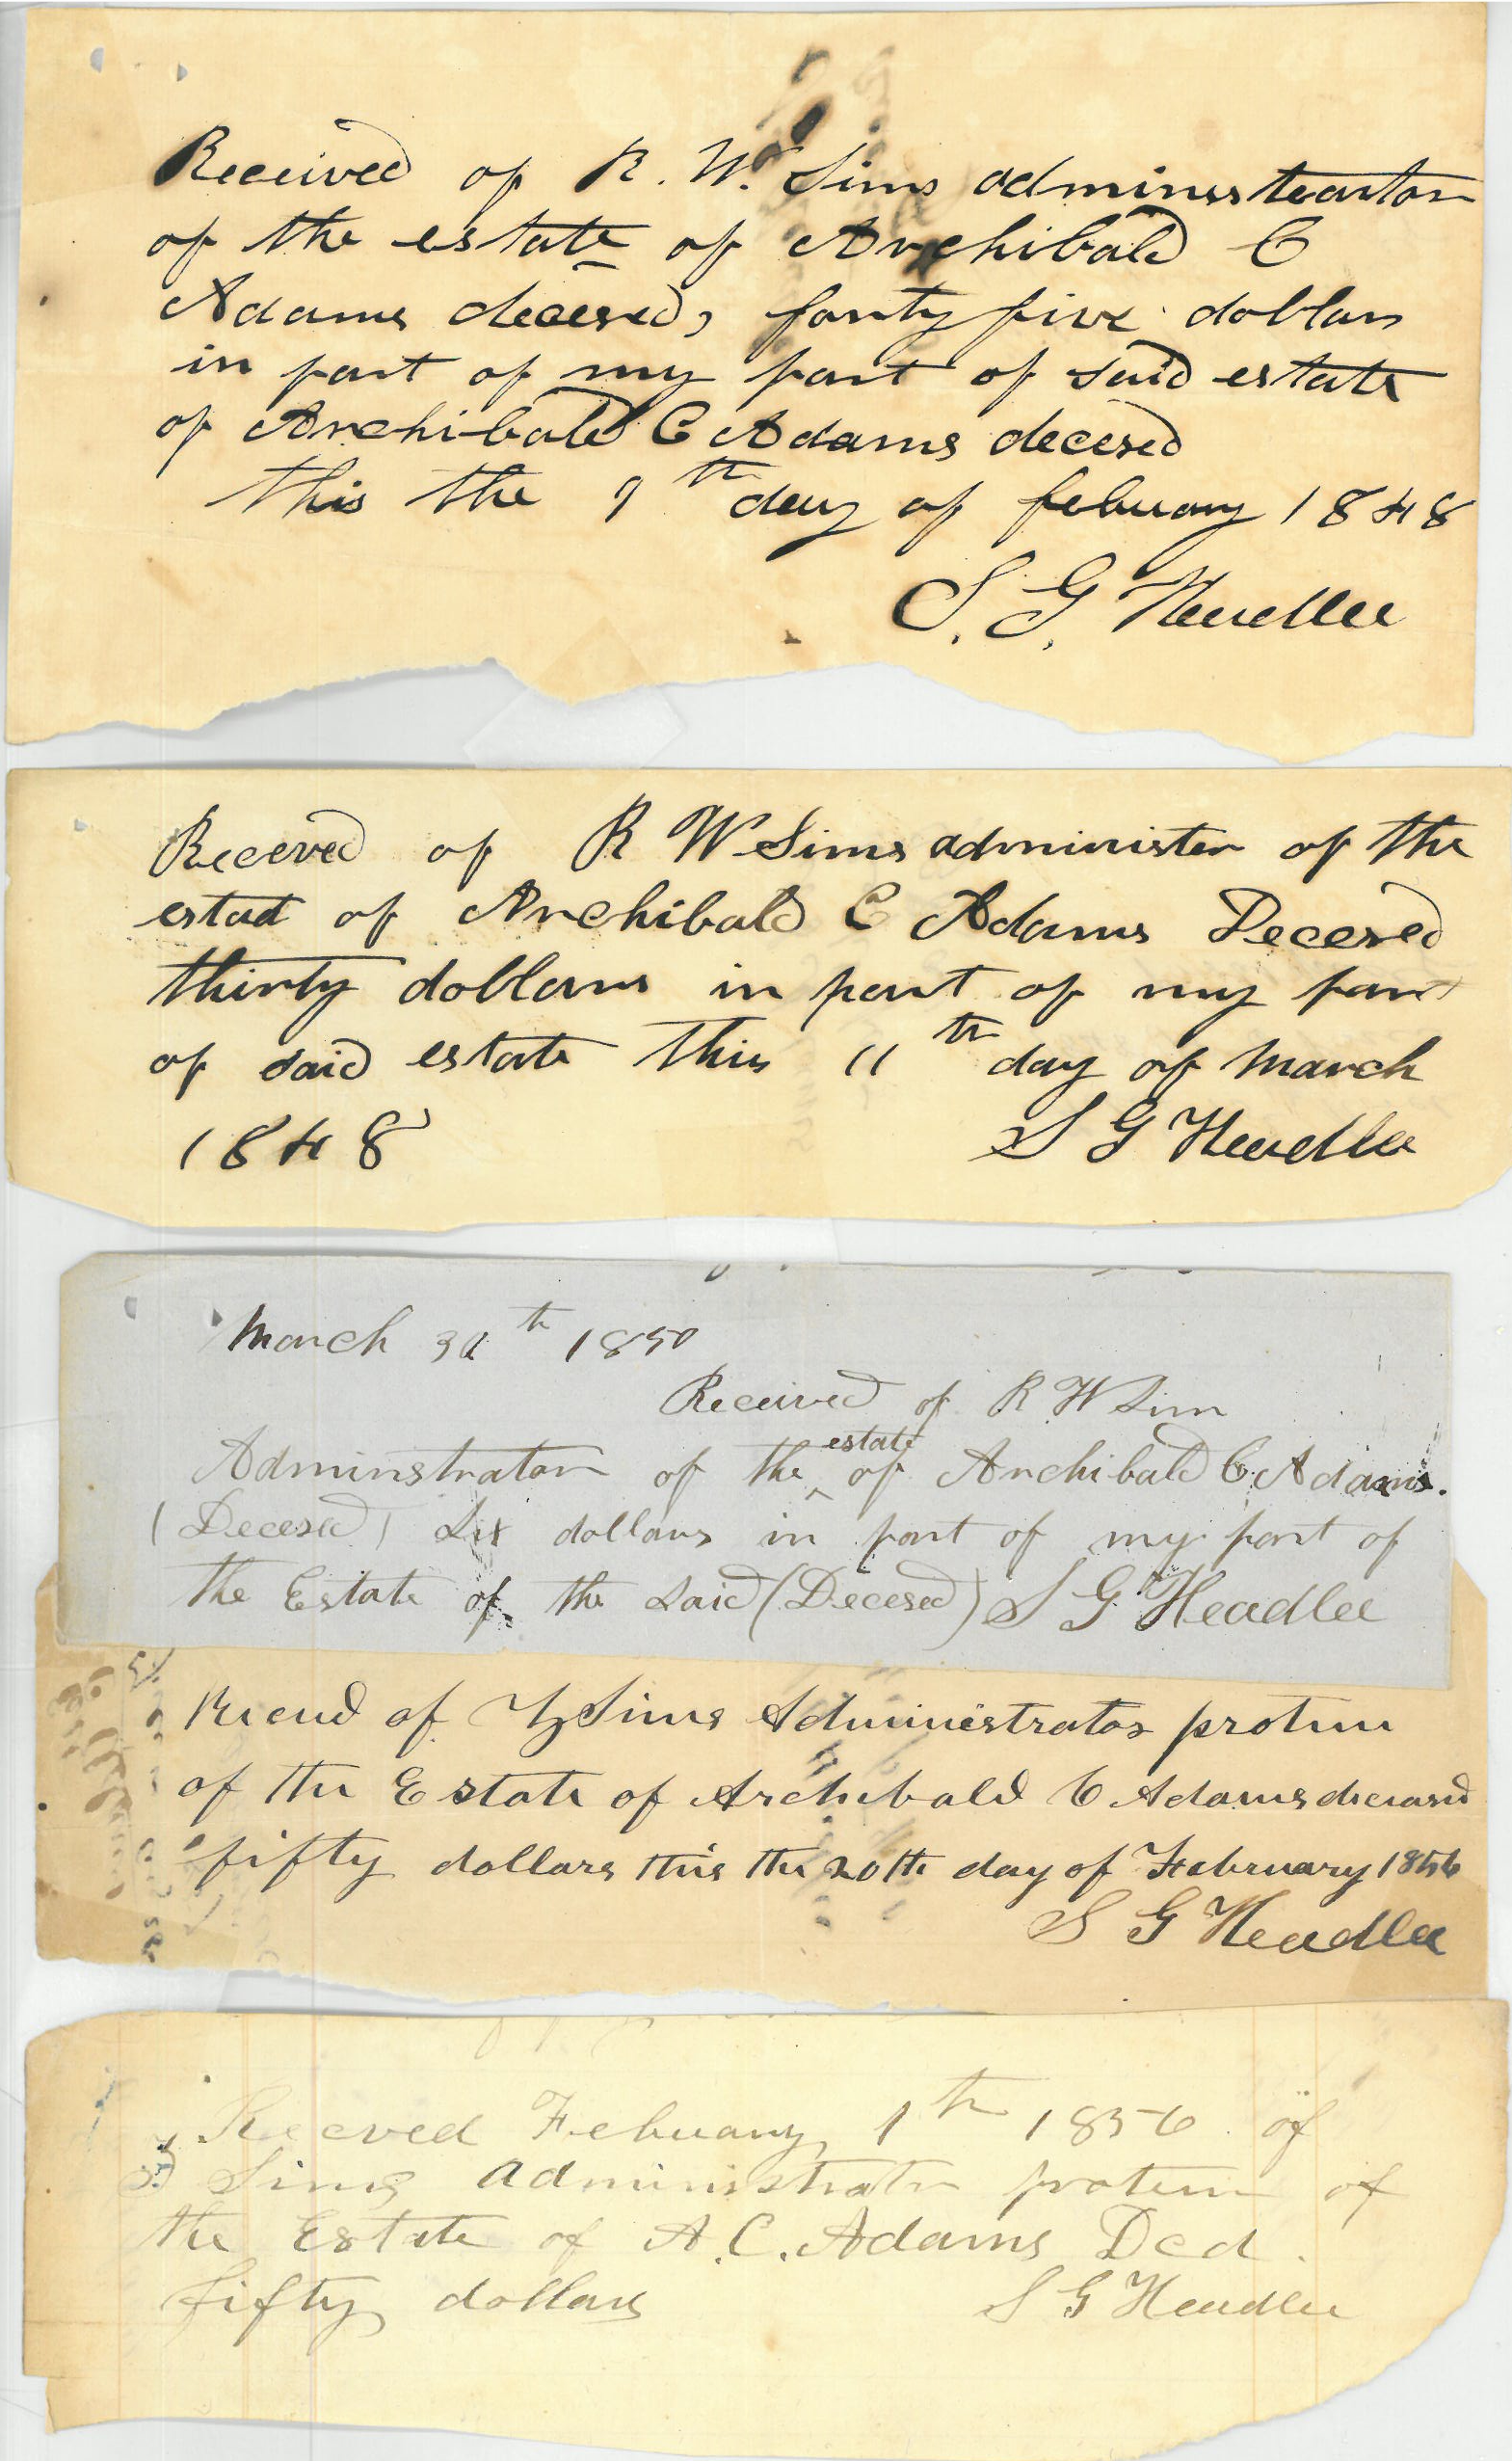 Received of R. W. Sims administeartor
of the estate of Archibald C
Adams decesed, forty five dollars
in part of my part of said estate
of Archibald C Adams decesed
this the 9th day of febuary 1848
S. G. Headlee
Receved of R W Sims administer of the
estat of Archibald C Adams Decesed
thirty dollars in part of my part
of said estate this 11th day of March
1848
S G Headlee
March 30th 1850
Received of R W Sims
Adminstrator of the estate of Archibald C. Adams.
(Decesed) Six dollars in part of my part of
the Estate of the said (Decesed) S G Headlee
Recevd of Sims Administrator protem
of the Estate of Archibald C Adams deceased
fifty dollars this the 20th day of February 1856
S G Headlee
Receved Febuary 1th 1856 of
Sims administrator protem of
the Estate of A. C. Adams Dcd.
fifty dollars
S G Headlee